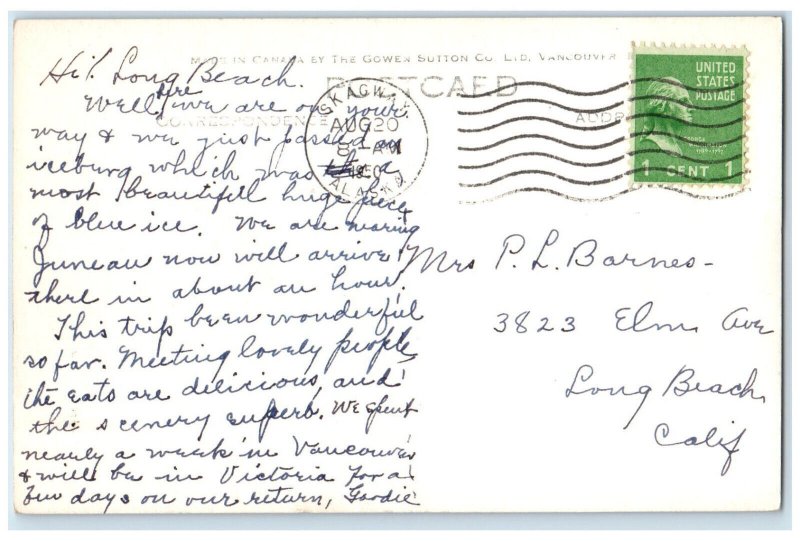 MADE IN CANADA BY THE GOWEN SUTTON CO. LTD. VANCOUVER
POSTCARD
CORRESPONDENCE
ADDR
SKAGWAY.
AUG 20
8 AM
1950
ALASKA
UNITED
STATES
POSTAGE
1 CENT 1
Hi! Long Beach.
Well, here we are on your
way & we just passed an
iceburg which was a
most beautifull huge piece
of blue ice. We are nearing
Juneau now will arrive
there in about an hour.
This trip been wonderful
so far. Meeting lovely people,
the eats are delicious, and
the scenery superb. We spent
nearly a week in Vancouver
& will be in Victoria for a
few days on our return, Goodie
Mrs P. L. Barnes-
3823 Elm Ave
Long Beach,
Calif